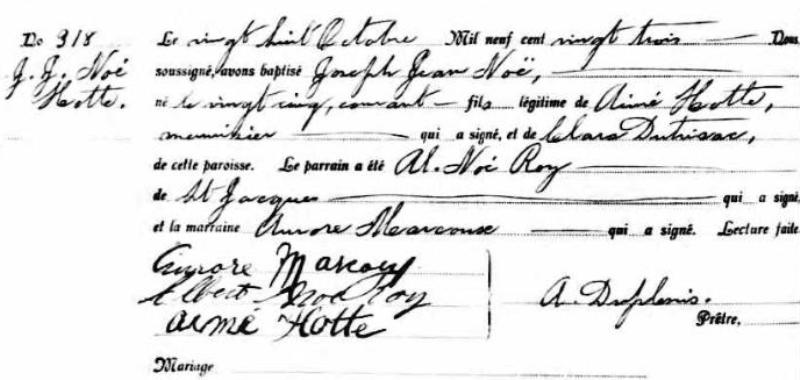 No 318 Le vingt huit Octobre Mil neuf cent vingt trois Nous
J. J. Noé soussigné, avons baptisé Joseph Jean Noë,
Hotte. né le vingt cinq, courant fils légitime de Aimé Hotte,
menuisier qui a signé, et de Clara Dutrisac,
de cette paroisse. Le parrain a été Al. Noé Roy
de St Jacques qui a signé
et la marraine Aurore Marcoux qui a signé. Lecture faite
Aurore Marcoux
Albert Noé Roy
A. Duplessis.
Aimé Hotte
Prêtre,
Mariage